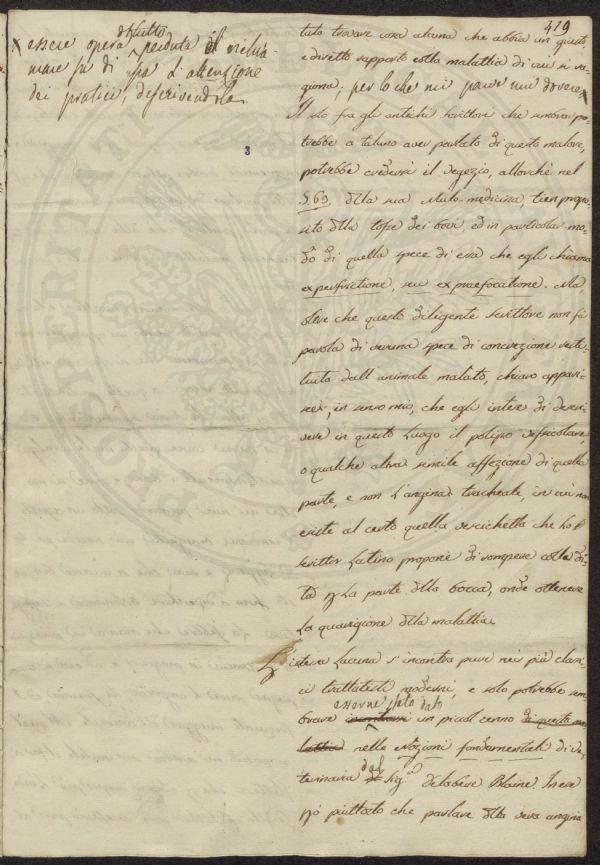 419
x essere opera del tutto perduta il richia-
mare su di essa l'attenzione
dei pratici, descrivendola.
3
tuto trovare cosa alcuna che abbia un giusto,
e diretto rapporto colla malattia di cui si ra-
giona; per lo che mi parve non dovere x
Il solo fra gli antichi scrittori che sembrar po-
trebbe a taluno aver parlato di questo malore,
potrebbe credersi il Vegezio, allorchè nel
§. 69. della sua Mulo-medicina, tien propo-
sito della tosse dei bovi, ed in particolar mo-
do di quella spece di essa che egli chiama
ex perfrictione, seu ex praefocatione. Ma
oltre che questo diligente scrittore non fa
parola di veruna spece di concrezione
tuita dall'animale malato, chiaro appari-
sce, in senso mio, che egli intese di descri-
vere in questo luogo il polipo vescicolare,
o qualche altra simile affezione di quella
parte, e non l'angina tracheale, in cui non
esiste al certo quella vescichetta che lo
scrittor Latino propone di rompere colle di-
ta per la parte della bocca, onde ottenere
la guarigione della malattia.
L'istessa lacuna s'incontra pure nei più classi-
ci trattatisti moderni, e solo potrebbe sem-
brare esserne stato dato un piccol cenno di questa ma-
lattia nelle Nozioni fondamentali di Ve-
terinaria del Sig.r Delabere Blaine. Se non
piuttosto che parlare della vera angina